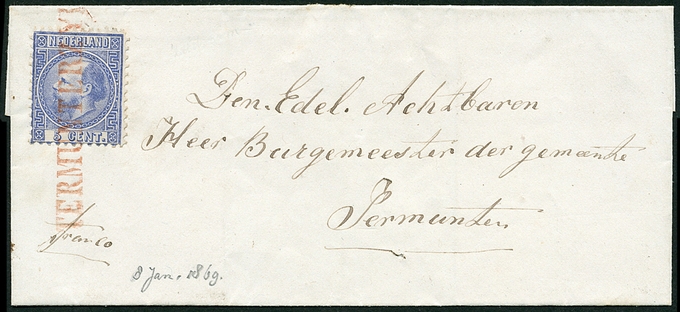 NEDERLAND
5 CENT.
Den. Edel. Achtbaren
Heer Burgemeester der gemeente
Termunten
franco
8 Jan. 1869.